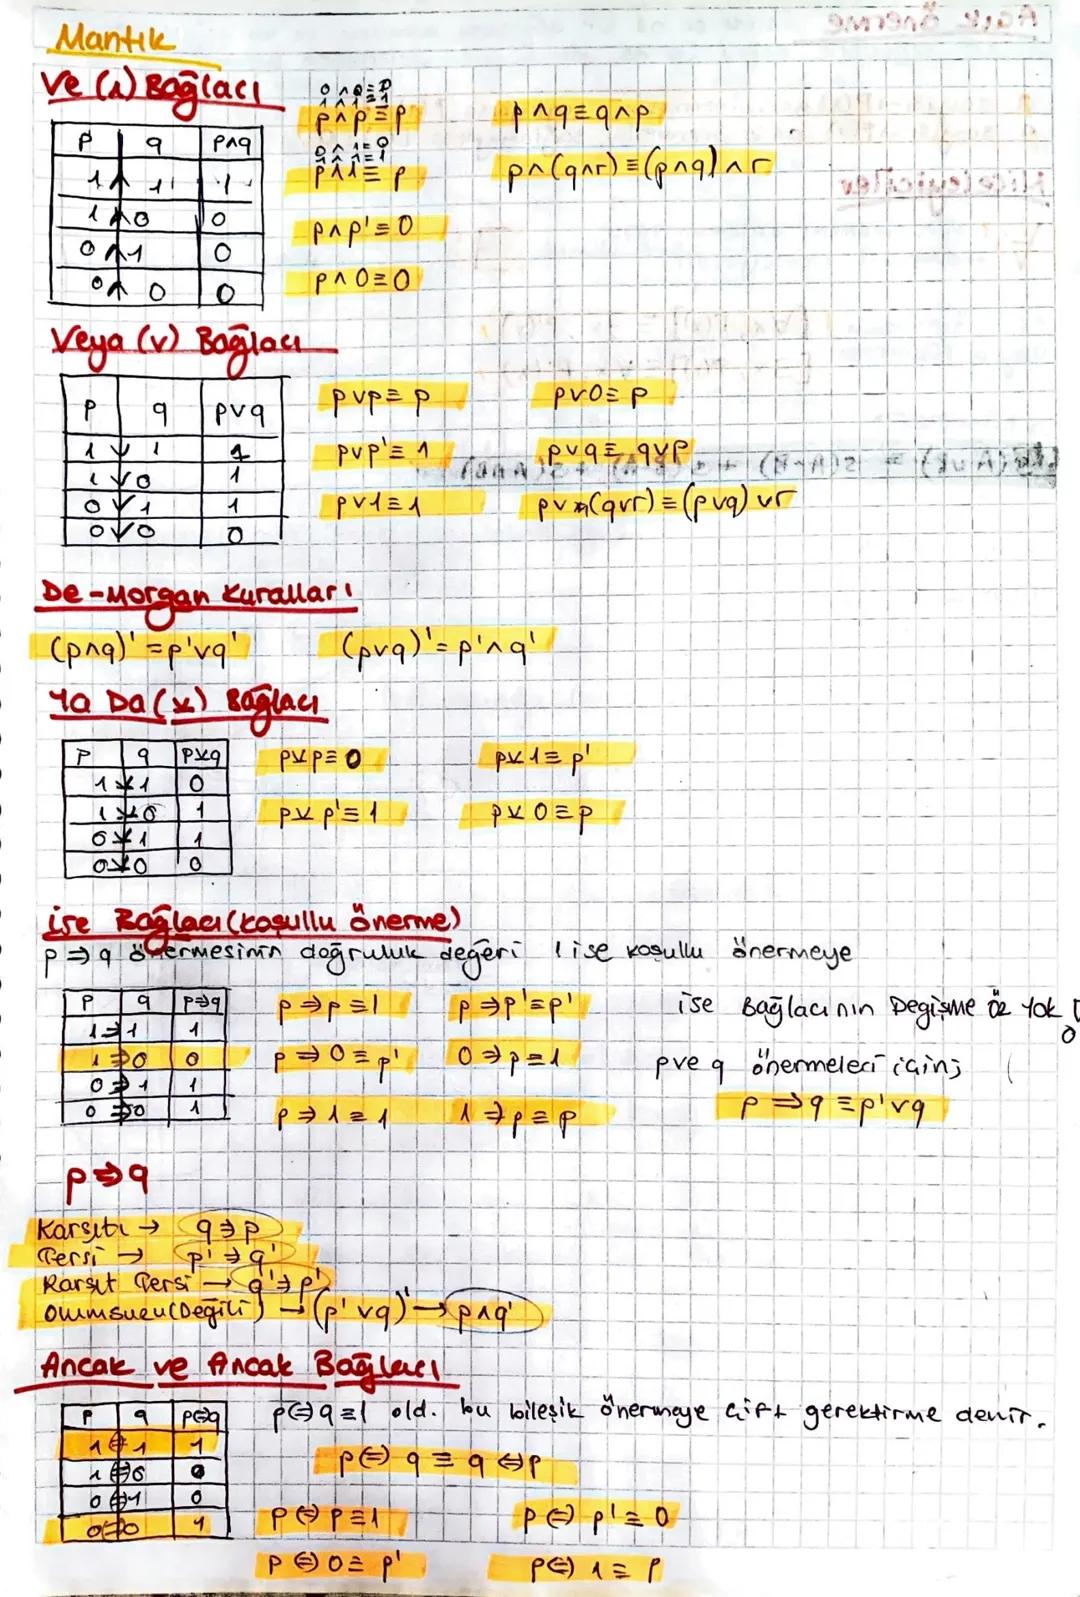 Mantık
Ve (∧) Bağlacı
0∧0≡0
1∧1≡1
p∧p≡p p∧q≡q∧p
0∧1≡0
1∧1≡1
p∧1≡p p∧(q∧r)≡(p∧q)∧r
p∧p'≡0
p∧0≡0
p q p∧q
1∧1 1
1∧0 0
0∧1 0
0∧0 0
Veya (v) Bağlacı
p q pvq
1v1 1
1v0 1
0v1 1
0v0 0
pvp≡p pv0≡p
pvp'≡1 pvq≡qvp
pv1≡1 pv(qvr)≡(pvq)vr
De-Morgan Kuralları
(p∧q)'=p'vq' (pvq)'=p'∧q'
Ya Da (⊻) Bağlacı
p q p⊻q
1⊻1 0
1⊻0 1
0⊻1 1
0⊻0 0
p⊻p≡0 p⊻1≡p'
p⊻p'≡1 p⊻0≡p
ise Bağlacı (koşullu önerme)
p⇒q önermesinin doğruluk değeri 1 ise koşullu önermeye
p q p⇒q
1⇒1 1
1⇒0 0
0⇒1 1
0⇒0 1
p⇒p≡1 p⇒p'≡p'
p⇒0≡p' 0⇒p≡1
p⇒1≡1 1⇒p≡p
ise Bağlacının Değişme öz yok
p ve q önermeleri için;
p⇒q≡p'vq
p⇒q
Karşıtı → q⇒p
Tersi → p'⇒q'
Karşıt Tersi → q'⇒p'
Olumsuzu (Değili) → (p'vq)' → p∧q'
Ancak ve Ancak Bağlacı
p q p⇔q
1⇔1 1
1⇔0 0
0⇔1 0
0⇔0 1
p⇔q≡1 old. bu bileşik önermeye çift gerektirme denir.
p⇔q≡q⇔p
p⇔p≡1 p⇔p'≡0
p⇔0≡p' p⇔1≡p